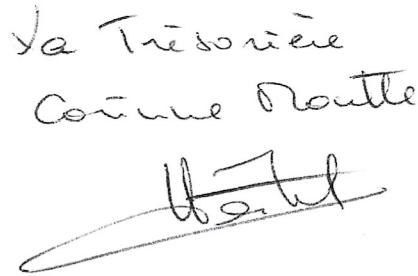 La Trésorière
Corinne Moutte